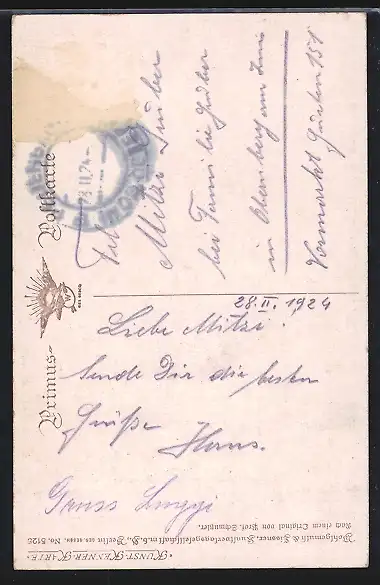 Primus-Postkarte
Frl.
Mitzi Huber
bei Familie Huber
in Obernberg am Inn
Vormarkt Gurten 151
28.II.1924
Liebe Mitzi!
Sende Dir die besten
Grüße
Hans.
Gruss
KUNST-KENNER-KARTE
Wohlgemuth & Lissner, Kunstverlagsgesellschaft m.b.H., Berlin No. 5125
Nach einem Original von Prof. Schmutzler.